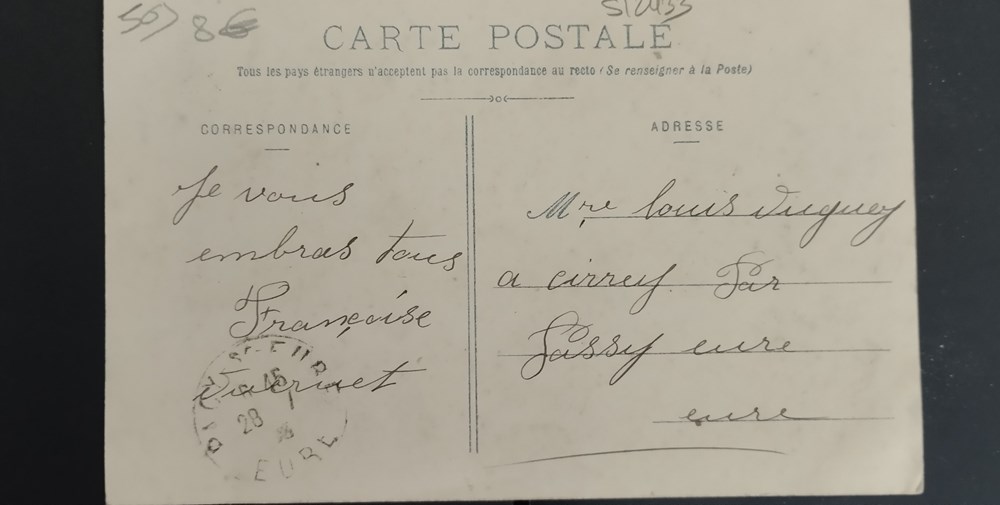 8€
CARTE POSTALE
Tous les pays étrangers n'acceptent pas la correspondance au recto (Se renseigner à la Poste)
CORRESPONDANCE
Je vous
embras tous
Françoise
ADRESSE
Mre louis duguey
a cirrey Par
Passy eure
eure
28
EURE